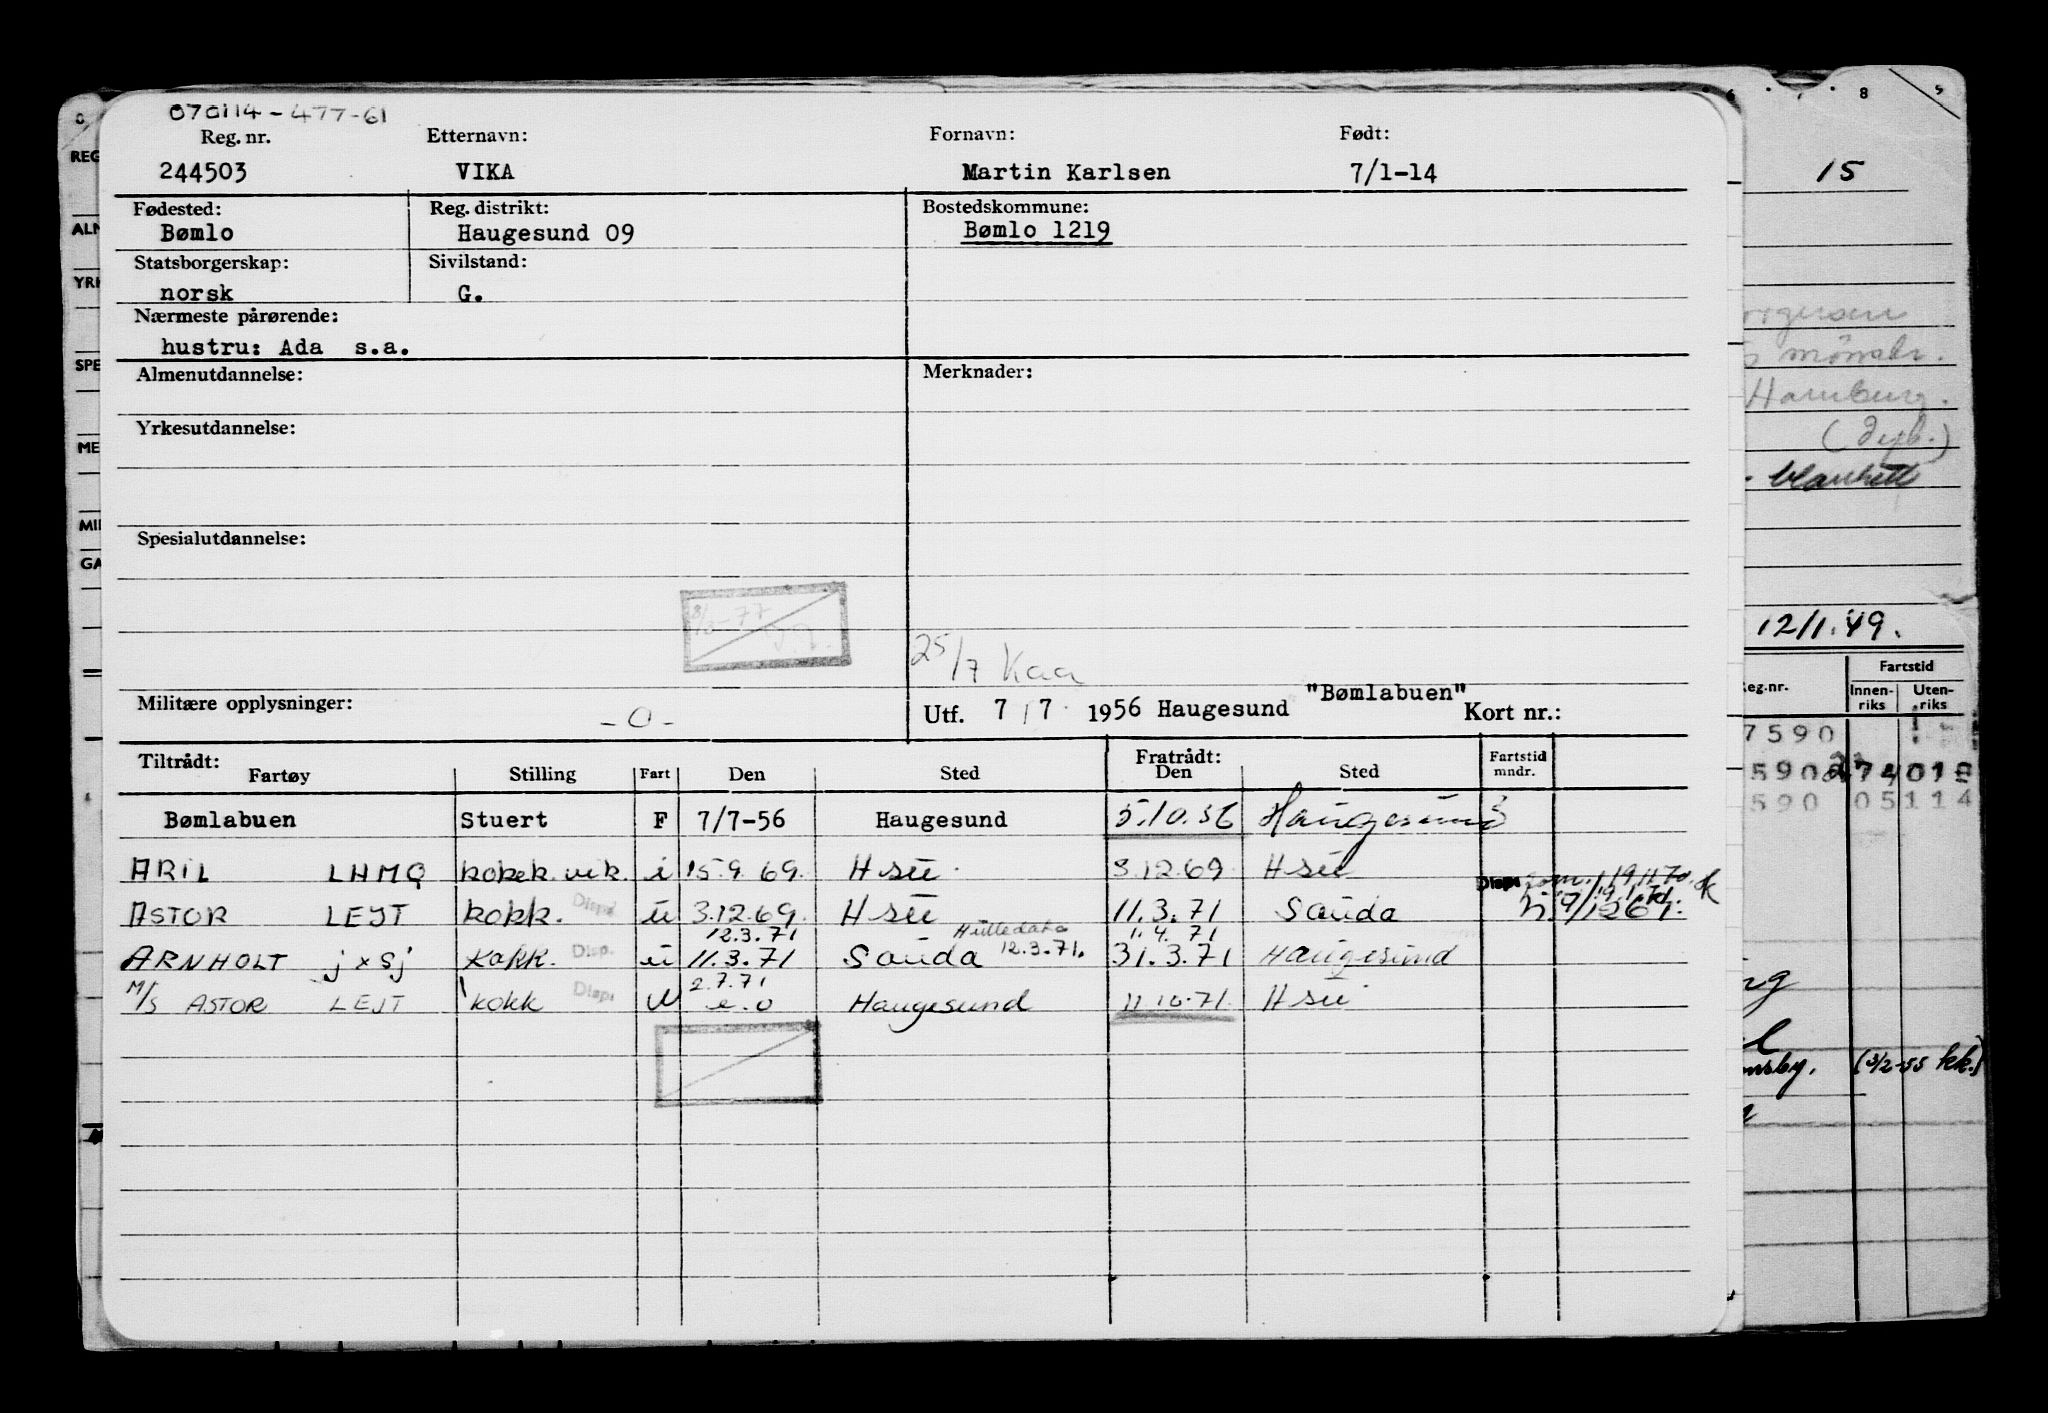 070114-477-61
Reg. nr. Etternavn: Fornavn: Født:
244503 VIKA Martin Karlsen 7/1-14
Fødested: Reg. distrikt: Bostedskommune:
Bømlo Haugesund 09 Bømlo 1219
Statsborgerskap: Sivilstand:
norsk G.
Nærmeste pårørende:
hustru: Ada s.a.
Almenutdannelse: Merknader:
Yrkesutdannelse:
Spesialutdannelse:
25/7 Kaa
Militære opplysninger: -0- Utf. 7/7 1956 Haugesund "Bømlabuen" Kort nr.:
Tiltrådt: Fratrådt: Fartstid
Fartøy Stilling Fart Den Sted Den Sted mndr.
Bømlabuen Stuert F 7/7-56 Haugesund 5.10.56 Haugesund 3
ARIL LHMQ kokk. vik. i 15.9.69. H su 3.12.69 H su
ASTOR LEJT kokk. Disp. u 3.12.69. H su 11.3.71 Sauda
12.3.71 Hulledato 1.4.71
ARNHOLT jxsj kokk. Disp. u 11.3.71 Sauda 12.3.71. 31.3.71 Haugesund
2.7.71
M/S ASTOR LEJT kokk Disp. U e.o Haugesund 11.10.71. H su
REG
ALN
YRK
SPE
ME
MIL
GA
8 5
15
mönstr.
Hamburg.
(dxb.)
blankett
12/1.49.
Reg.nr. Fartstid
Innenriks Utenriks
7590
590
590 05114
(3/2-55 kk.)